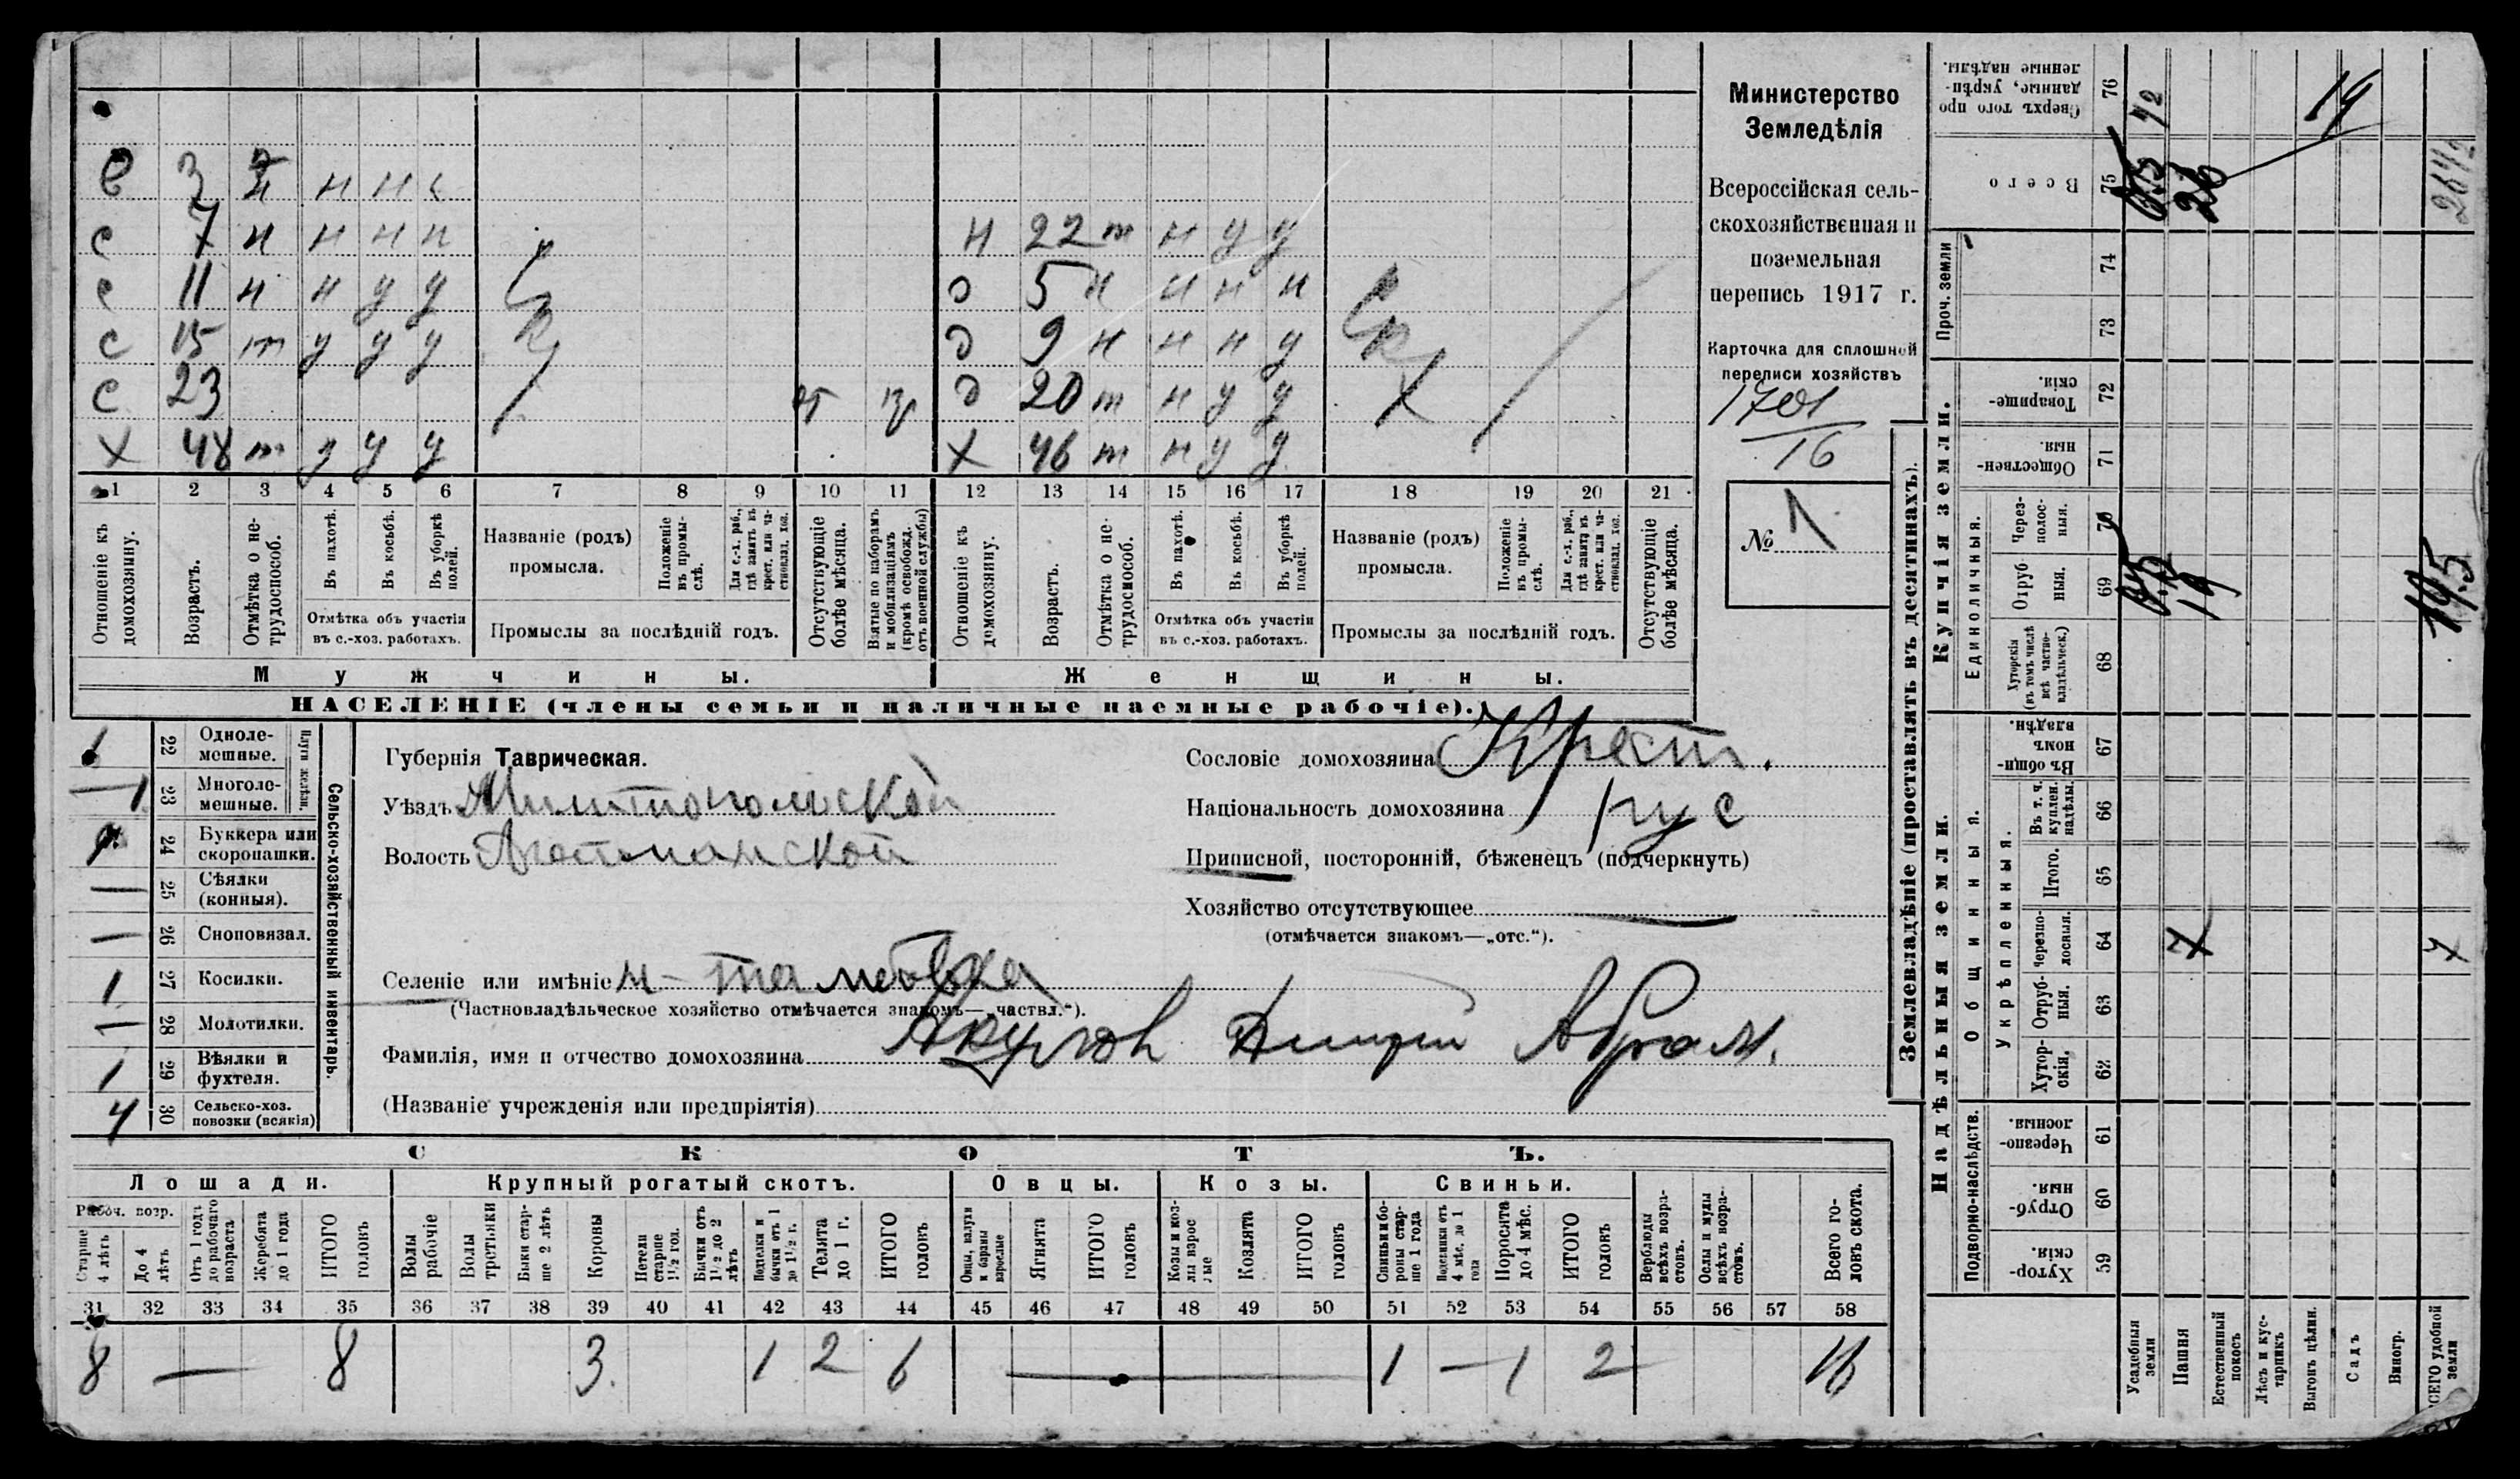 в 3 н н н
с 7 н н н н
с 11 н н у у
с 15 т у у у
с 23
х 48 т у у у
н 22 т н у у
д 5 н н н н
д 9 н н н у
д 20 т н у у
х 46 т н у у
1 2 3 4 5 6 7 8 9 10 11 12 13 14 15 16 17 18 19 20 21
Отношеніе къ домохозяину.
Возрастъ.
Отмѣтка о нетрудоспособ.
Въ пахотѣ.
Въ косьбѣ.
Въ уборкѣ полей.
Отмѣтка объ участіи въ с.-хоз. работахъ.
Названіе (родъ) промысла.
Положеніе въ промыслѣ.
Для с.-х. раб., гдѣ занятъ въ крест. или частновлад. хоз.
Промыслы за послѣдній годъ.
Отсутствующіе болѣе мѣсяца.
Взятые по наборамъ и мобилизаціямъ (кромѣ освобожд. отъ военной службы)
Отношеніе къ домохозяину.
Возрастъ.
Отмѣтка о нетрудоспособ.
Въ пахотѣ.
Въ косьбѣ.
Въ уборкѣ полей.
Отмѣтка объ участіи въ с.-хоз. работахъ.
Названіе (родъ) промысла.
Положеніе въ промыслѣ.
Для с.-х. раб., гдѣ занята въ крест. или частновлад. хоз.
Промыслы за послѣдній годъ.
Отсутствующіе болѣе мѣсяца.
Мужчины.
Женщины.
НАСЕЛЕНІЕ (члены семьи и наличные наемные рабочіе).
Министерство
Земледѣлія
Всероссійская сель-
скохозяйственная и
поземельная
перепись 1917 г.
Карточка для сплошной
переписи хозяйствъ
1701
16
№ 1
22 Одноле-мешные.
— 1 23 Многоле-мешные.
Плуги желѣзн.
24 Буккера или скоропашки.
— 25 Сѣялки (конныя).
— 26 Сноповязал.
1 27 Косилки.
— 28 Молотилки.
1 29 Вѣялки и фухтеля.
4 30 Сельско-хоз. повозки (всякія)
Сельско-хозяйственный инвентарь.
Губернія Таврическая.
Уѣздъ Милитопольской
Волость Агайманской
Селеніе или имѣніе н-тамбовка
(Частновладѣльческое хозяйство отмѣчается знакомъ—„частвл.“).
Фамилія, имя и отчество домохозяина Акулов Дмитрий Абрам.
(Названіе учрежденія или предпріятія)
Сословіе домохозяина Крест.
Національность домохозяина рус
Приписной, посторонній, бѣженецъ (подчеркнуть)
Хозяйство отсутствующее —
(отмѣчается знакомъ—„отс.“).
СКОТЪ.
Лошади. Крупный рогатый скотъ. Овцы. Козы. Свиньи.
Рабоч. возр.
Старше 4 лѣтъ
До 4 лѣтъ
Отъ 1 года до рабочаго возраста
Жеребята до 1 года
ИТОГО головъ
Волы рабочіе
Волы третьяки
Быки старше 2 лѣтъ
Коровы
Нетели старше 1½ год.
Бычки отъ 1½ до 2 лѣтъ
Подтелки и бычки отъ 1 до 1½ г.
Телята до 1 г.
ИТОГО головъ
Овцы, валухи и бараны взрослые
Ягнята
ИТОГО головъ
Козы и козлы взрослые
Козлята
ИТОГО головъ
Свиньи и бороны старше 1 года
Подсвинки отъ 4 мѣс. до 1 года
Поросята до 4 мѣс.
ИТОГО головъ
Верблюды всѣхъ возрастовъ.
Ослы и мулы всѣхъ возрастовъ.
Всего головъ скота.
31 32 33 34 35 36 37 38 39 40 41 42 43 44 45 46 47 48 49 50 51 52 53 54 55 56 57 58
8 — 8 3 1 2 6 — 1 — 1 2 16
Землевладѣніе (проставлять въ десятинахъ).
Купчія земли.
Надѣльныя земли.
Сверхъ того проданные, укрѣпленные надѣлы.
76
Всего
75
Проч. земли
74
73
Товарищескія.
72
Общественныя.
71
Единоличныя.
Черезполосныя.
70
Отрубныя.
69
Хуторскія (въ томъ числѣ всѣ частновладѣльческ.)
68
Общинныя.
Въ общинномъ владѣн.
67
Укрѣпленныя.
Въ т. ч. куплен. надѣлы.
66
Итого.
65
Черезполосныя.
64
Отрубныя.
63
Хуторскія.
62
Подворно-наслѣдств.
Черезполосныя.
61
Отрубныя.
60
Хуторскія.
59
½
26
19
26½
19
19.5
7
7
Усадебныя земли
Пашня
Естественный покосъ
Лѣсъ и кустарникъ
Выгонъ цѣлин.
Садъ
Виногр.
ВСЕГО удобной земли